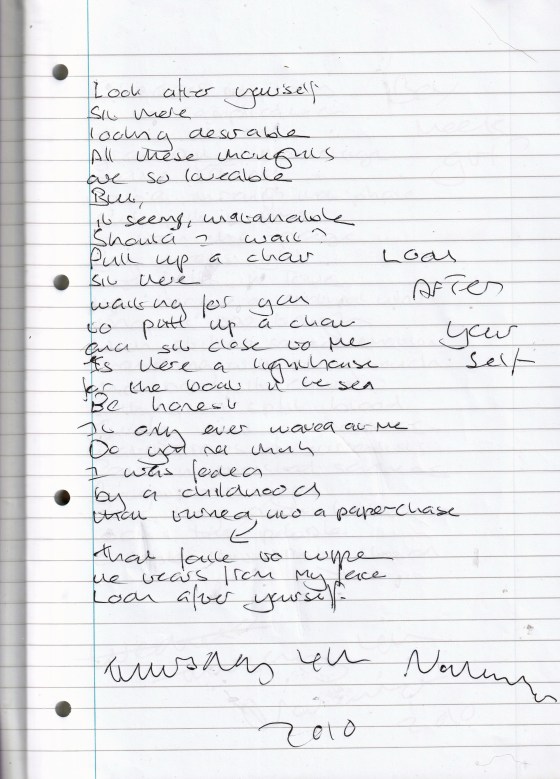 Look after yourself
Sit there
looking desirable
All these thoughts
are so loveable
But,
it seems, unattainable
Should I wait?
Pull up a chair
Sit there
waiting for you
to pull up a chair
and sit close to me
Is there a lighthouse
for the boats in the sea
Be honest
It only ever waved at me
Do you not think
I was fooled
by a childhood
that turned into a paperchase
that failed to wipe
the tears from my face
Look after yourself.
LOOK
AFTER
Your
Self
Thursday 4th
2010